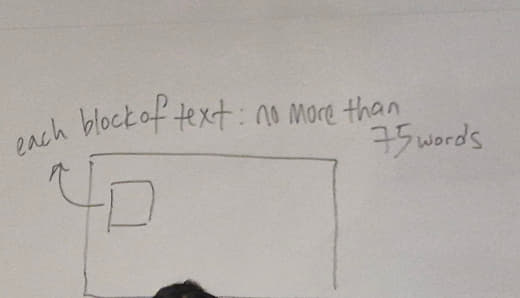 each block of text: no more than
75 words